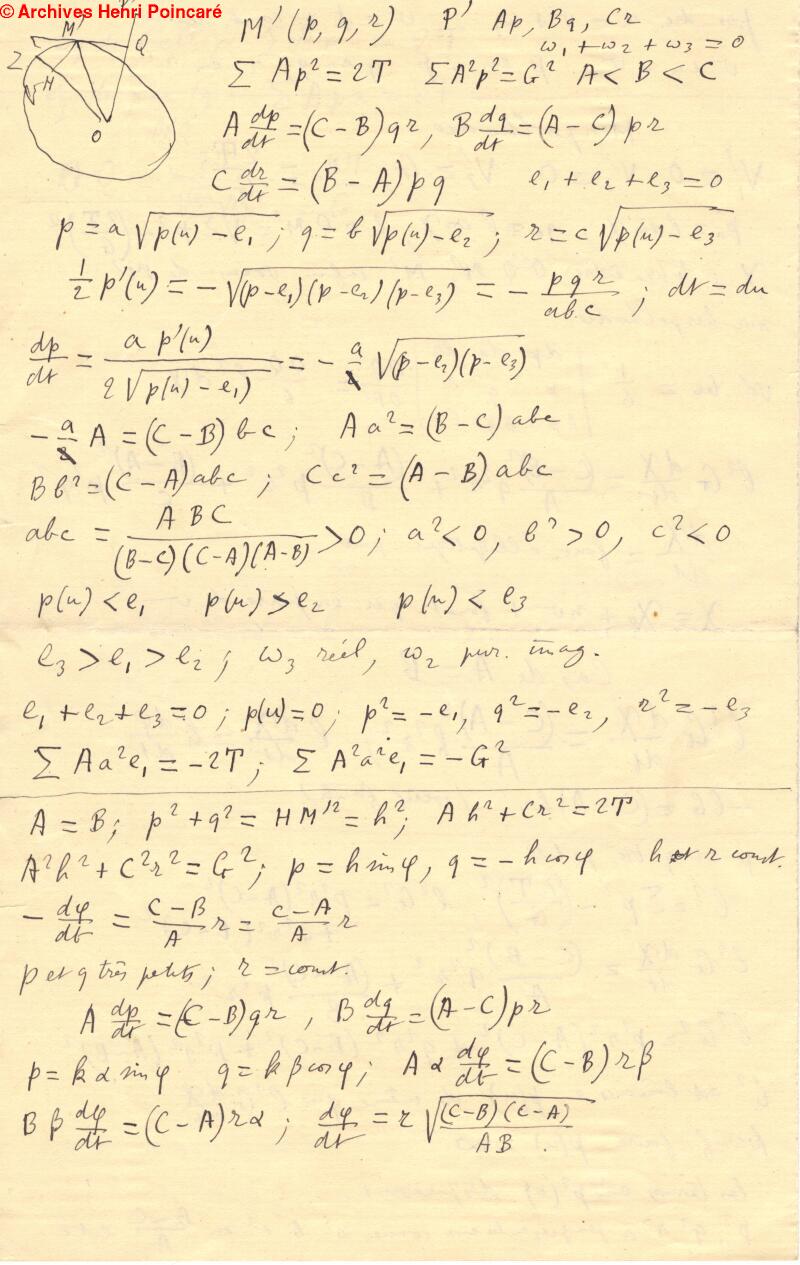 © Archives Henri Poincaré
M' (p, q, r)    P'   Ap, Bq, Cr
M'   Q
Z   H
O
ω₁ + ω₂ + ω₃ = 0
∑ Ap² = 2T   ∑A²p² = G²   A < B < C
A dp/dt = (C − B) qr , B dq/dt = (A − C) pr
C dr/dt = (B − A) pq    e₁ + e₂ + e₃ = 0
p = a √(p(u) − e₁) ; q = b √(p(u) − e₂) ; r = c √(p(u) − e₃)
½ p'(u) = − √((p−e₁)(p−e₂)(p−e₃)) = − pqr/abc ; dt = du
dp/dt = a p'(u) / 2√(p(u) − e₁) = − a √((p − e₂)(p − e₃))
− a A = (C − B) bc ;   A a² = (B − C) abc
B b² = (C − A) abc ;   C c² = (A − B) abc
abc = ABC / (B−C)(C−A)(A−B) > 0 ; a² < 0, b² > 0, c² < 0
p(u) < e₁   p(u) > e₂   p(u) < e₃
e₃ > e₁ > e₂ ; ω₃ réel, ω₂ pur. imag.
e₁ + e₂ + e₃ = 0 ; p(u) = 0 ; p² = −e₁, q² = −e₂, r² = −e₃
∑ A a² e₁ = −2T ; ∑ A² a² e₁ = −G²
A = B ; p² + q² = HM'² = h² ; A h² + C r² = 2T
A²h² + C²r² = G² ; p = h sin φ, q = −h cos φ   h et r const.
− dφ/dt = (C − B)/A r = (C − A)/A r
p et q très petits ; r = const.
A dp/dt = (C − B) qr , B dq/dt = (A − C) pr
p = k α sin φ   q = k β cos φ ;   A α dφ/dt = (C − B) r β
B β dφ/dt = (C − A) r α ; dφ/dt = r √((C−B)(C−A)/AB) .